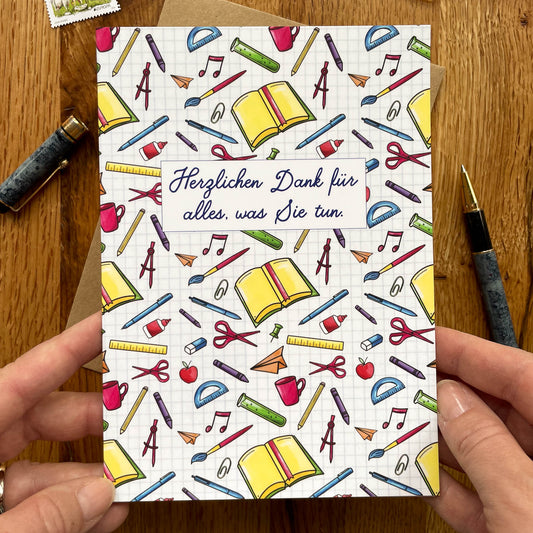 Herzlichen Dank für
alles, was Sie tun.